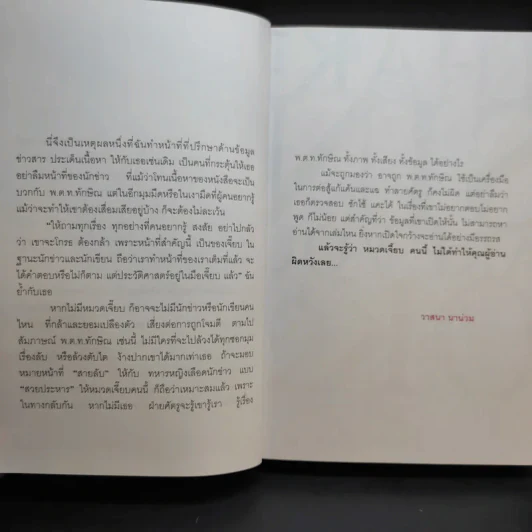 นี่จึงเป็นเหตุผลหนึ่งที่ฉันทำหน้าที่ที่ปรึกษาด้านข้อมูล
ข่าวสาร ประเด็นเนื้อหา ให้กับเธอเช่นเดิม เป็นคนที่กระตุ้นให้เธอ
อย่าลืมหน้าที่ของนักข่าว ที่แม้ว่าโทนเนื้อหาของหนังสือจะเป็น
บวกกับ พ.ต.ท.ทักษิณ แต่ในอีกมุมมืดหรือในเงามืดที่ผู้คนอยากรู้
แม้ว่าจะทำให้เขาต้องเสื่อมเสียอยู่บ้าง ก็จะต้องไม่ละเว้น
"ให้ถามทุกเรื่อง ทุกอย่างที่คนอยากรู้ สงสัย อย่าไปกลัว
ว่า เขาจะโกรธ ต้องกล้า เพราะหน้าที่สำคัญนี้ เป็นของเจี๊ยบ ใน
ฐานะนักข่าวและนักเขียน ถือว่าเราทำหน้าที่ของเราเต็มที่แล้ว จะ
ได้คำตอบหรือไม่ก็ตาม แต่ประวัติศาสตร์อยู่ในมือเจี๊ยบ แล้ว" ฉัน
ย้ำกับเธอ
หากไม่มีหมวดเจี๊ยบ ก็อาจจะไม่มีนักข่าวหรือนักเขียนคน
ไหน ที่กล้าและยอมเปลืองตัว เสี่ยงต่อการถูกโจมตี ตามไป
สัมภาษณ์ พ.ต.ท.ทักษิณ เช่นนี้ ไม่มีใครที่จะไปล้วงได้ทุกซอกมุม
เรื่องลับ หรือล้วงตับไต ง้างปากเขาได้มากเท่าเธอ ถ้าจะมอบ
หมายหน้าที่ "สายลับ" ให้กับ ทหารหญิงเลือดนักข่าว แบบ
"สวยประหาร" ให้หมวดเจี๊ยบคนนี้ ก็ถือว่าเหมาะสมแล้ว เพราะ
ในทางกลับกัน หากไม่มีเธอ ฝ่ายศัตรูจะรู้เขารู้เรา รู้เรื่อง
พ.ต.ท.ทักษิณ ทั้งภาพ ทั้งเสียง ทั้งข้อมูล ได้อย่างไร
แม้จะถูกมองว่า อาจถูก พ.ต.ท.ทักษิณ ใช้เป็นเครื่องมือ
ในการต่อสู้แก้แค้นและแฉ ทำลายศัตรู ก็คงไม่ผิด แต่อย่าลืมว่า
เธอก็ตรวจสอบ ซักไซ้ แคะไค้ ในเรื่องที่เขาไม่อยากตอบไม่อยาก
พูด ก็ไม่น้อย แต่สำคัญที่ว่า ข้อมูลที่เขาเปิดให้นั้น ไม่สามารถหา
อ่านได้จากเล่มไหน ยิ่งหากเปิดใจกว้างจะอ่านได้อย่างมีอรรถรส
แล้วจะรู้ว่า หมวดเจี๊ยบ คนนี้ ไม่ได้ทำให้คุณผู้อ่าน
ผิดหวังเลย...
วาสนา นาน่วม